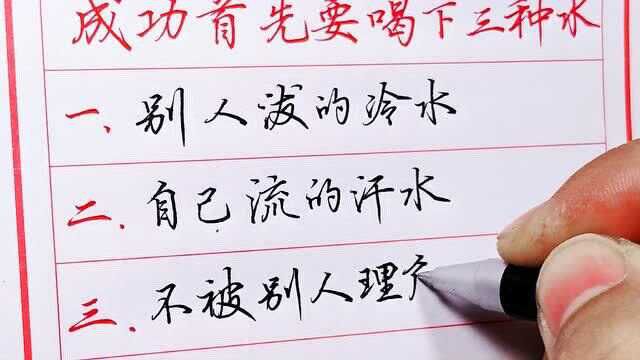 成功首先要喝下三种水
一、别人泼的冷水
二、自己流的汗水
三、不被别人理